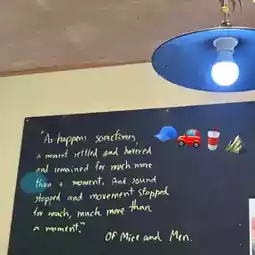 "As happens sometimes,
a moment settled and hovered
and remained for much more
than a moment. And sound
stopped and movement stopped
for much, much more than
a moment."
Of Mice and Men.